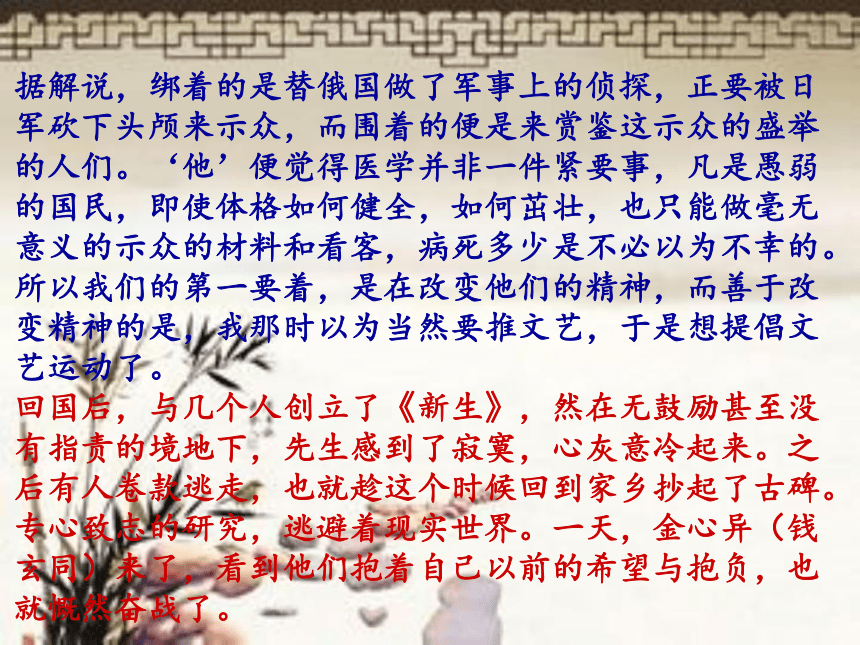 据解说，绑着的是替俄国做了军事上的侦探，正要被日
军砍下头颅来示众，而围着的便是来赏鉴这示众的盛举
的人们。‘他’便觉得医学并非一件紧要事，凡是愚弱
的国民，即使体格如何健全，如何茁壮，也只能做毫无
意义的示众的材料和看客，病死多少是不必以为不幸的。
所以我们的第一要着，是在改变他们的精神，而善于改
变精神的是，我那时以为当然要推文艺，于是想提倡文
艺运动了。
回国后，与几个人创立了《新生》，然在无鼓励甚至没
有指责的境地下，先生感到了寂寞，心灰意冷起来。之
后有人卷款逃走，也就趁这个时候回到家乡抄起了古碑。
专心致志的研究，逃避着现实世界。一天，金心异（钱
玄同）来了，看到他们抱着自己以前的希望与抱负，也
就慨然奋战了。